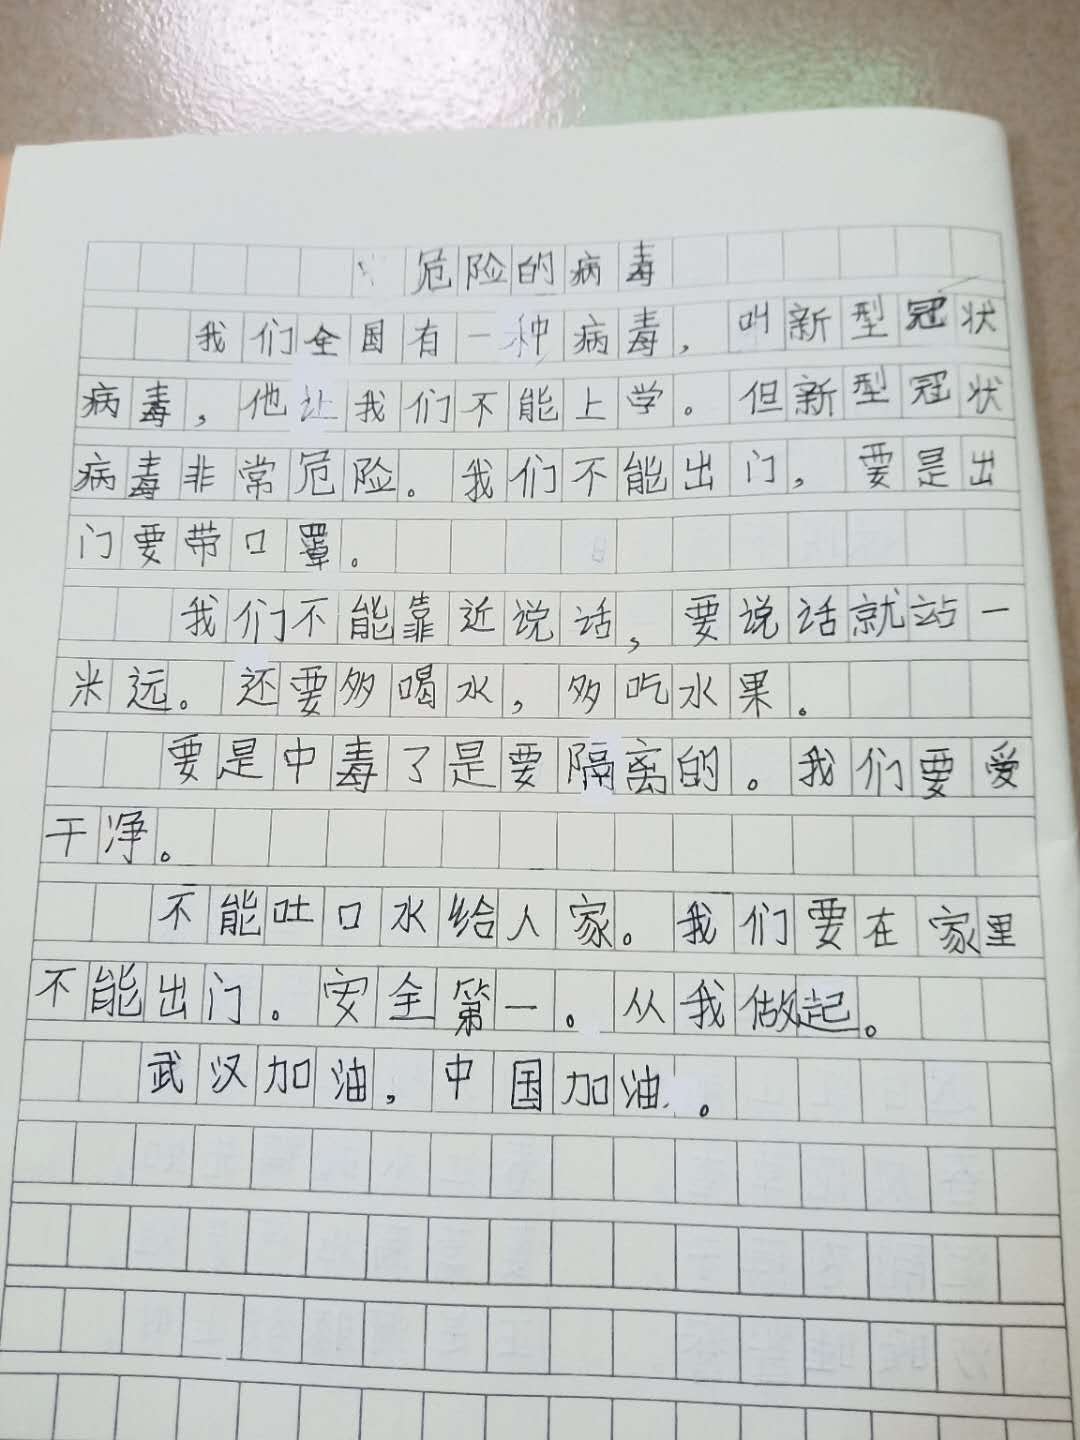 危险的病毒
我们全国有一种病毒，叫新型冠状
病毒，他让我们不能上学。但新型冠状
病毒非常危险。我们不能出门，要是出
门要带口罩。
我们不能靠近说话，要说话就站一
米远。还要多喝水，多吃水果。
要是中毒了是要隔离的。我们要爱
干净。
不能吐口水给人家。我们要在家里
不能出门。安全第一。从我做起。
武汉加油，中国加油。